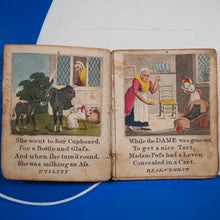 She went to her Cupboard,
For a Bottle and Glaſs.
And when she turn'd round,
She was milking an Aſs.
UTILITY
While the DAME was gone out,
To get a nice Tart,
Madam Puſs had a Lover,
Concealed in a Cart,
RESENTMENT